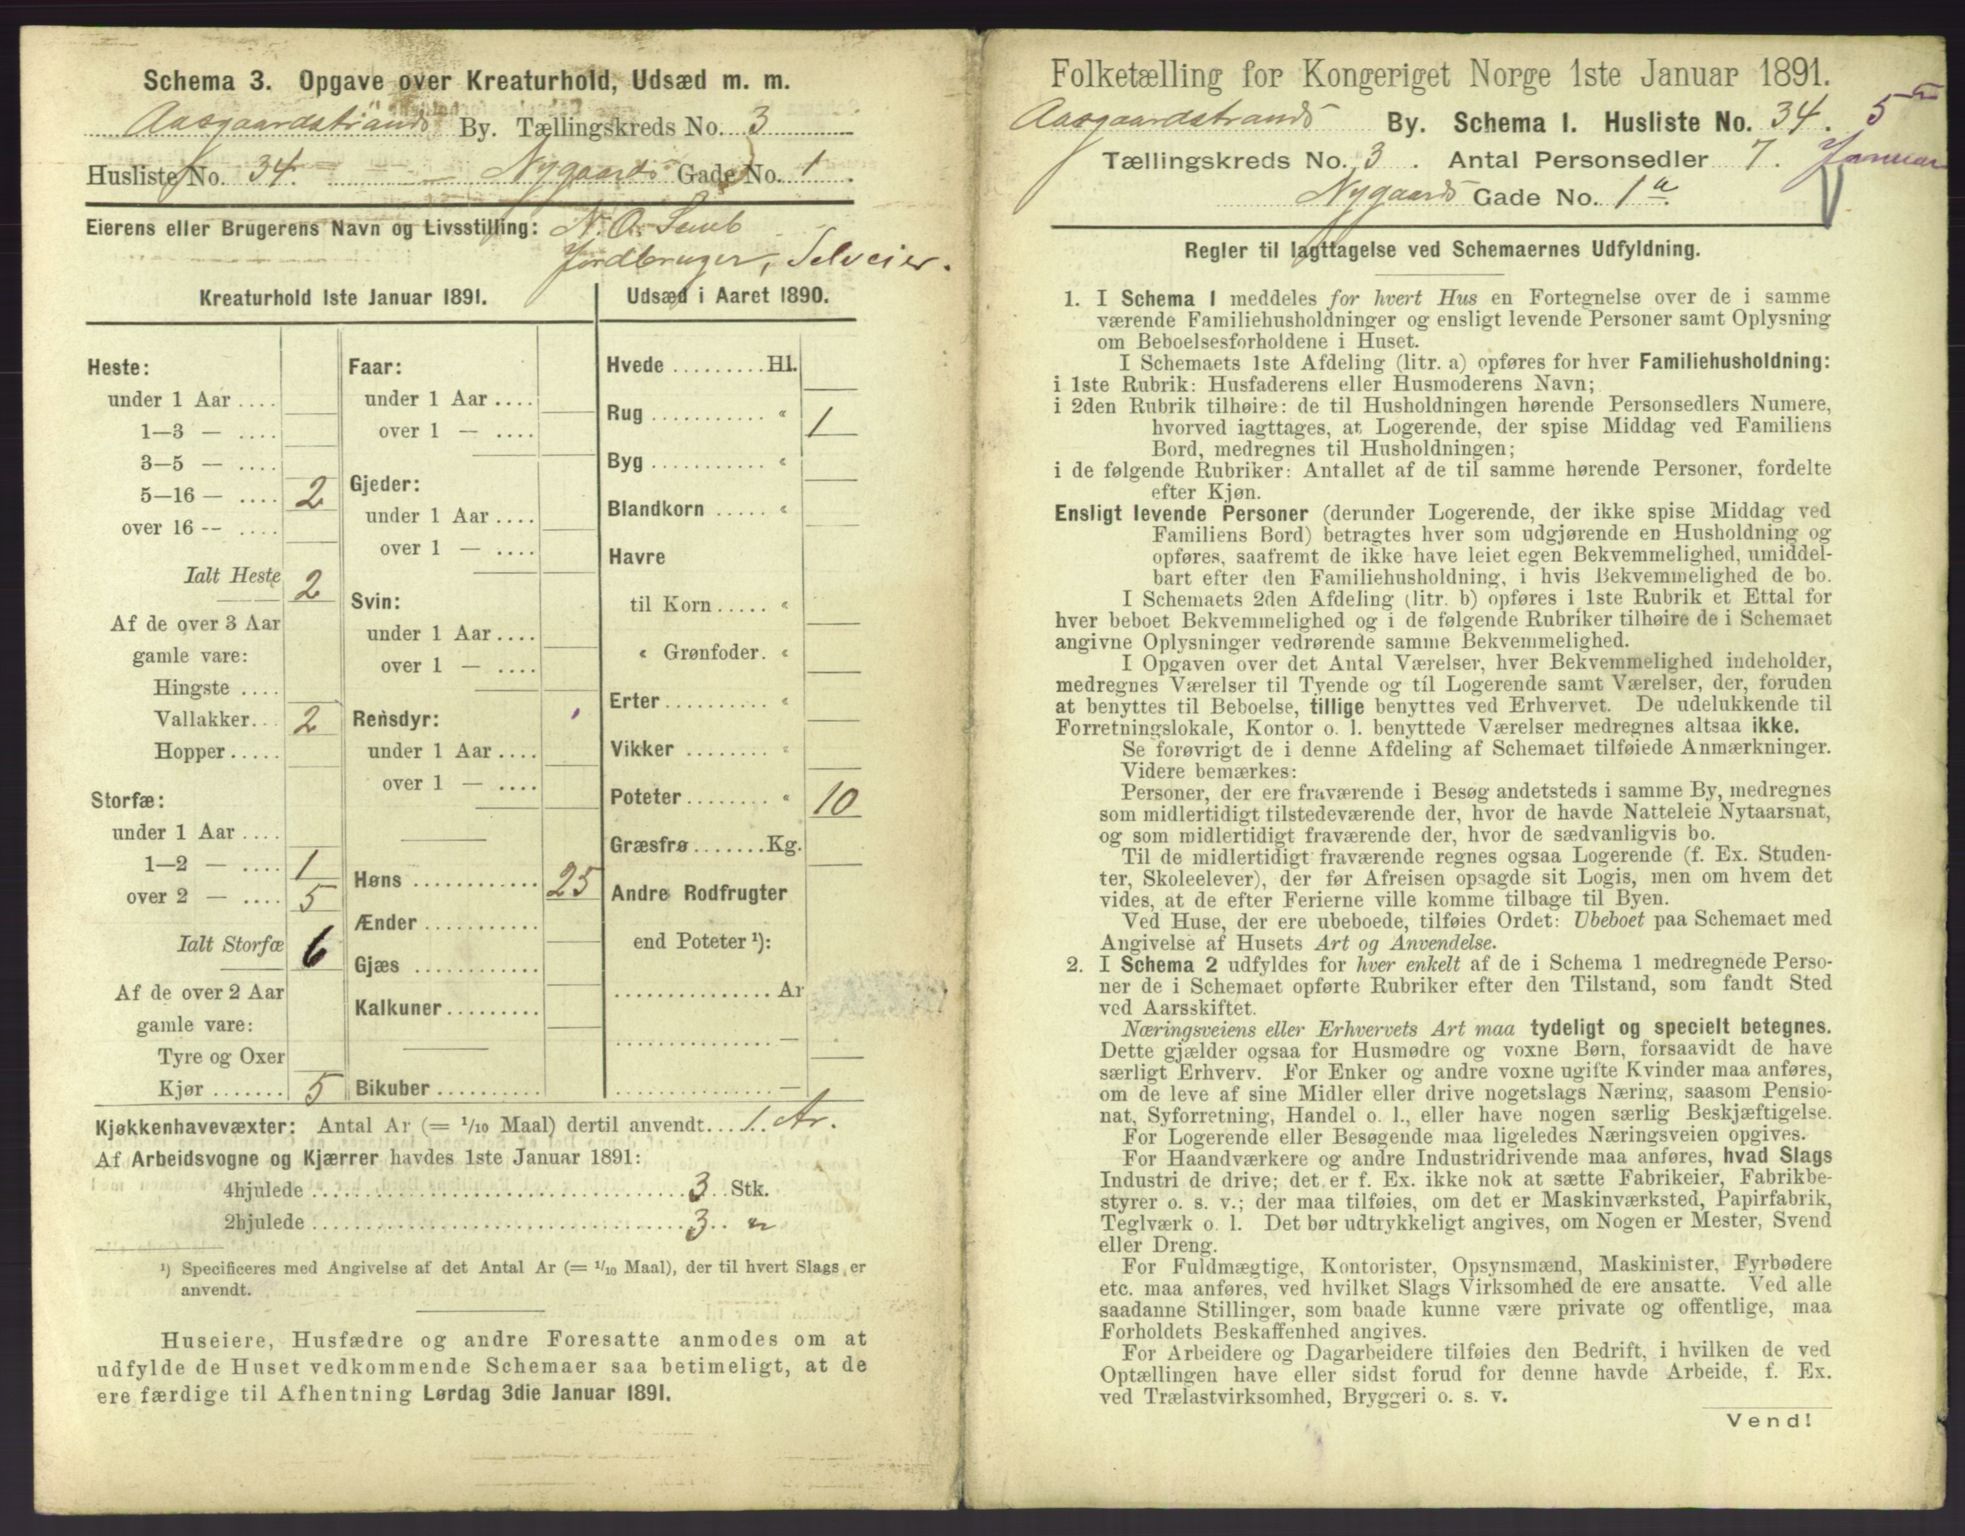 Schema 3. Opgave over Kreaturhold, Udsæd m. m.
Aasgaardstrands By. Tællingskreds No. 3
Husliste No. 34. Nygaards Gade No. 1.
Eierens eller Brugerens Navn og Livsstilling: N. A. Semb
Jordbruger, Selveier.
Kreaturhold 1ste Januar 1891.
Heste:
under 1 Aar ....
1—3 — ....
3—5 — ....
5—16 — .... 2
over 16 -- ....
Ialt Heste 2
Af de over 3 Aar
gamle vare:
Hingste ....
Vallakker... 2
Hopper.....
Storfæ:
under 1 Aar ....
1—2 — .... 1
over 2 — .... 5
Ialt Storfæ 6
Af de over 2 Aar
gamle vare:
Tyre og Oxer
Kjør ....... 5
Faar:
under 1 Aar ....
over 1 — ....
Gjeder:
under 1 Aar ....
over 1 — ....
Svin:
under 1 Aar ....
over 1 — ....
Rensdyr:
under 1 Aar ....
over 1 — ....
Høns ............ 25
Ænder ...........
Gjæs ............
Kalkuner.........
Bikuber ..........
Udsæd i Aaret 1890.
Hvede .........Hl.
Rug ........... „ 1
Byg ........... „
Blandkorn ..... „
Havre
til Korn ..... „
„ Grønfoder. „
Erter .......... „
Vikker ......... „
Poteter........ „ 10
Græsfrø.......Kg.
Andre Rodfrugter
end Poteter ¹):
............... Ar
............... —
............... —
Kjøkkenhavevæxter: Antal Ar (= 1/10 Maal) dertil anvendt... 1. Ar.
Af Arbeidsvogne og Kjærrer havdes 1ste Januar 1891:
4hjulede .................................... 3 Stk.
2hjulede .................................... 3 „
¹) Specificeres med Angivelse af det Antal Ar (= 1/10 Maal), der til hvert Slags er
anvendt.
Huseiere, Husfædre og andre Foresatte anmodes om at
udfylde de Huset vedkommende Schemaer saa betimeligt, at de
ere færdige til Afhentning Lørdag 3die Januar 1891.
Folketælling for Kongeriget Norge 1ste Januar 1891.
Aasgaardstrands By. Schema 1. Husliste No. 34. 5te
Tællingskreds No. 3. Antal Personsedler 7. Januar
Nygaards Gade No. 1a.
Regler til Iagttagelse ved Schemaernes Udfyldning.
1. I Schema 1 meddeles for hvert Hus en Fortegnelse over de i samme
værende Familiehusholdninger og ensligt levende Personer samt Oplysning
om Beboelsesforholdene i Huset.
I Schemaets 1ste Afdeling (litr. a) opføres for hver Familiehusholdning:
i 1ste Rubrik: Husfaderens eller Husmoderens Navn;
i 2den Rubrik tilhøire: de til Husholdningen hørende Personsedlers Numere,
hvorved iagttages, at Logerende, der spise Middag ved Familiens
Bord, medregnes til Husholdningen;
i de følgende Rubriker: Antallet af de til samme hørende Personer, fordelte
efter Kjøn.
Ensligt levende Personer (derunder Logerende, der ikke spise Middag ved
Familiens Bord) betragtes hver som udgjørende en Husholdning og
opføres, saafremt de ikke have leiet egen Bekvemmelighed, umiddel-
bart efter den Familiehusholdning, i hvis Bekvemmelighed de bo.
I Schemaets 2den Afdeling (litr. b) opføres i 1ste Rubrik et Ettal for
hver beboet Bekvemmelighed og i de følgende Rubriker tilhøire de i Schemaet
angivne Oplysninger vedrørende samme Bekvemmelighed.
I Opgaven over det Antal Værelser, hver Bekvemmelighed indeholder,
medregnes Værelser til Tyende og til Logerende samt Værelser, der, foruden
at benyttes til Beboelse, tillige benyttes ved Erhvervet. De udelukkende til
Forretningslokale, Kontor o. l. benyttede Værelser medregnes altsaa ikke.
Se forøvrigt de i denne Afdeling af Schemaet tilføiede Anmærkninger.
Videre bemærkes:
Personer, der ere fraværende i Besøg andetsteds i samme By, medregnes
som midlertidigt tilstedeværende der, hvor de havde Natteleie Nytaarsnat,
og som midlertidigt fraværende der, hvor de sædvanligvis bo.
Til de midlertidigt fraværende regnes ogsaa Logerende (f. Ex. Studen-
ter, Skoleelever), der før Afreisen opsagde sit Logis, men om hvem det
vides, at de efter Ferierne ville komme tilbage til Byen.
Ved Huse, der ere ubeboede, tilføies Ordet: Ubeboet paa Schemaet med
Angivelse af Husets Art og Anvendelse.
2. I Schema 2 udfyldes for hver enkelt af de i Schema 1 medregnede Perso-
ner de i Schemaet opførte Rubriker efter den Tilstand, som fandt Sted
ved Aarsskiftet.
Næringsveiens eller Erhvervets Art maa tydeligt og specielt betegnes.
Dette gjælder ogsaa for Husmødre og voxne Børn, forsaavidt de have
særligt Erhverv. For Enker og andre voxne ugifte Kvinder maa anføres,
om de leve af sine Midler eller drive nogetslags Næring, saasom Pensio-
nat, Syforretning, Handel o. l., eller have nogen særlig Beskjæftigelse.
For Logerende eller Besøgende maa ligeledes Næringsveien opgives.
For Haandværkere og andre Industridrivende maa anføres, hvad Slags
Industri de drive; det er f. Ex. ikke nok at sætte Fabrikeier, Fabrikbe-
styrer o. s. v.; der maa tilføies, om det er Maskinværksted, Papirfabrik,
Teglværk o. l. Det bør udtrykkeligt angives, om Nogen er Mester, Svend
eller Dreng.
For Fuldmægtige, Kontorister, Opsynsmænd, Maskinister, Fyrbødere
etc. maa anføres, ved hvilket Slags Virksomhed de ere ansatte. Ved alle
saadanne Stillinger, som baade kunne være private og offentlige, maa
Forholdets Beskaffenhed angives.
For Arbeidere og Dagarbeidere tilføies den Bedrift, i hvilken de ved
Optællingen have eller sidst forud for denne havde Arbeide, f. Ex.
ved Trælastvirksomhed, Bryggeri o. s. v.
Vend!